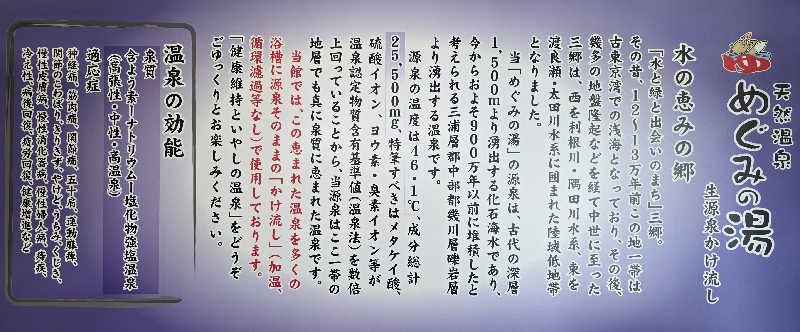 天然温泉
めぐみの湯
生源泉かけ流し
水の恵みの郷
「水と緑と出会いのまち」三郷。
その昔、12～13万年前この地一帯は
古東京湾での浅海となっており、その後、
幾多の地盤隆起などを経て中世に至った
三郷は、西を利根川・隅田川水系、東を
渡良瀬・太田川水系に囲まれた陸域低地帯
となりました。
当「めぐみの湯」の源泉は、古代の深層
1,500mより湧出する化石海水であり、
今からおよそ900万年以前に堆積したと
考えられる三浦層群中部都幾川層礫岩層
より湧出する温泉です。
源泉の温度は46・1℃、成分総計
25,500mg、特筆すべきはメタケイ酸、
硫酸イオン、ヨウ素・臭素イオン等が
温泉認定物質含有基準値（温泉法）を数倍
上回っていることから、当源泉はここ一帯の
地層でも真に泉質に恵まれた温泉です。
当館では、この恵まれた温泉を多くの
浴槽に源泉そのままの「かけ流し」（加温、
循環濾過等なし）で使用しております。
「健康維持といやしの温泉」をどうぞ
ごゆっくりとお楽しみください。
温泉の効能
泉質
含よう素－ナトリウム－塩化物強塩温泉
（高張性・中性・高温泉）
適応症
神経痛、筋肉痛、関節痛、五十肩、運動麻痺、
関節のこわばり、きりきず、やけど、うちみ、くじき、
慢性皮膚病、慢性消化器病、慢性婦人病、痔疾、
冷え性、病後回復、疲労回復、健康増進など